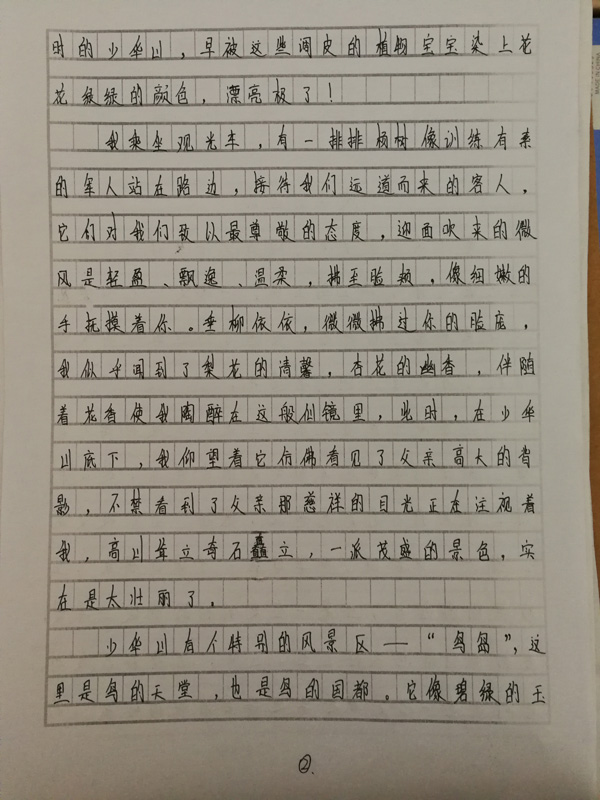 时的少华山，早被这些调皮的植物宝宝染上花
花绿绿的颜色，漂亮极了！
我乘坐观光车，有一排排杨树像训练有素
的军人站在路边，接待我们远道而来的客人，
它们对我们致以最尊敬的态度，迎面吹来的微
风是轻盈、飘逸、温柔，拂至脸颊，像细嫩的
手抚摸着你。垂柳依依，微微拂过你的脸庞，
我似乎闻到了梨花的清馨，杏花的幽香，伴随
着花香使我陶醉在这般仙镜里，此时，在少华
山底下，我仰望着它仿佛看见了父亲高大的背
影，不禁看到了父亲那慈祥的目光正在注视着
我，高山耸立奇石矗立，一派茂盛的景色，实
在是太壮丽了。
少华山有个特别的风景区——“鸟岛”，这
里是鸟的天堂，也是鸟的国都。它像碧绿的玉
②.
MADE IN CHINA